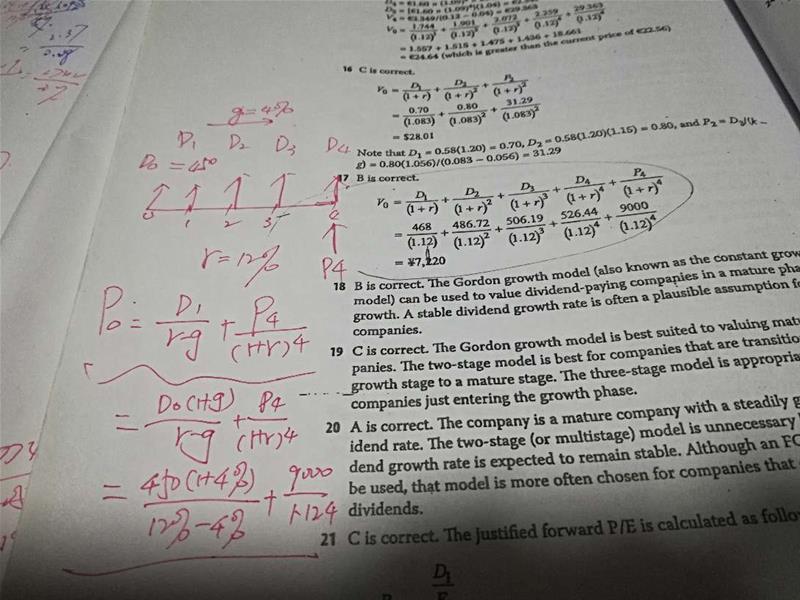 D₃ = [€1.60 × (1.09)⁴](1.04) = €2.349
V₀ = 1.744/(1.12) + 1.901/(1.12)² + 2.072/(1.12)³ + 2.259/(1.12)⁴ + 29.363/(1.12)⁴
= 1.557 + 1.515 + 1.475 + 1.436 + 18.661
= €24.64 (which is greater than the current price of €22.56)
16 C is correct.
V₀ = D₁/(1 + r) + D₂/(1 + r)² + P₂/(1 + r)²
= 0.70/(1.083) + 0.80/(1.083)² + 31.29/(1.083)²
= $28.01
Note that D₁ = 0.58(1.20) = 0.70, D₂ = 0.58(1.20)(1.15) = 0.80, and P₂ = D₃/(k –
g) = 0.80(1.056)/(0.083 – 0.056) = 31.29
17 B is correct.
V₀ = D₁/(1 + r) + D₂/(1 + r)² + D₃/(1 + r)³ + D₄/(1 + r)⁴ + P₄/(1 + r)⁴
= 468/(1.12) + 486.72/(1.12)² + 506.19/(1.12)³ + 526.44/(1.12)⁴ + 9000/(1.12)⁴
= ¥7,220
18 B is correct. The Gordon growth model (also known as the constant grow
model) can be used to value dividend-paying companies in a mature pha
growth. A stable dividend growth rate is often a plausible assumption fo
companies.
19 C is correct. The Gordon growth model is best suited to valuing matu
panies. The two-stage model is best for companies that are transition
growth stage to a mature stage. The three-stage model is appropria
companies just entering the growth phase.
20 A is correct. The company is a mature company with a steadily g
idend rate. The two-stage (or multistage) model is unnecessary
dend growth rate is expected to remain stable. Although an FC
be used, that model is more often chosen for companies that
dividends.
21 C is correct. The justified forward P/E is calculated as follo
D₁
g = 4%
D₁ D₂ D₃ D4
D₀ = 450
0 1 2 3 4
r = 12%
P4
P₀ = D₁/(r-g) + P4/(1+r)4
= D₀(1+g)/(r-g) + P4/(1+r)4
= 450(1+4%)/(12%-4%) + 9000/1.124